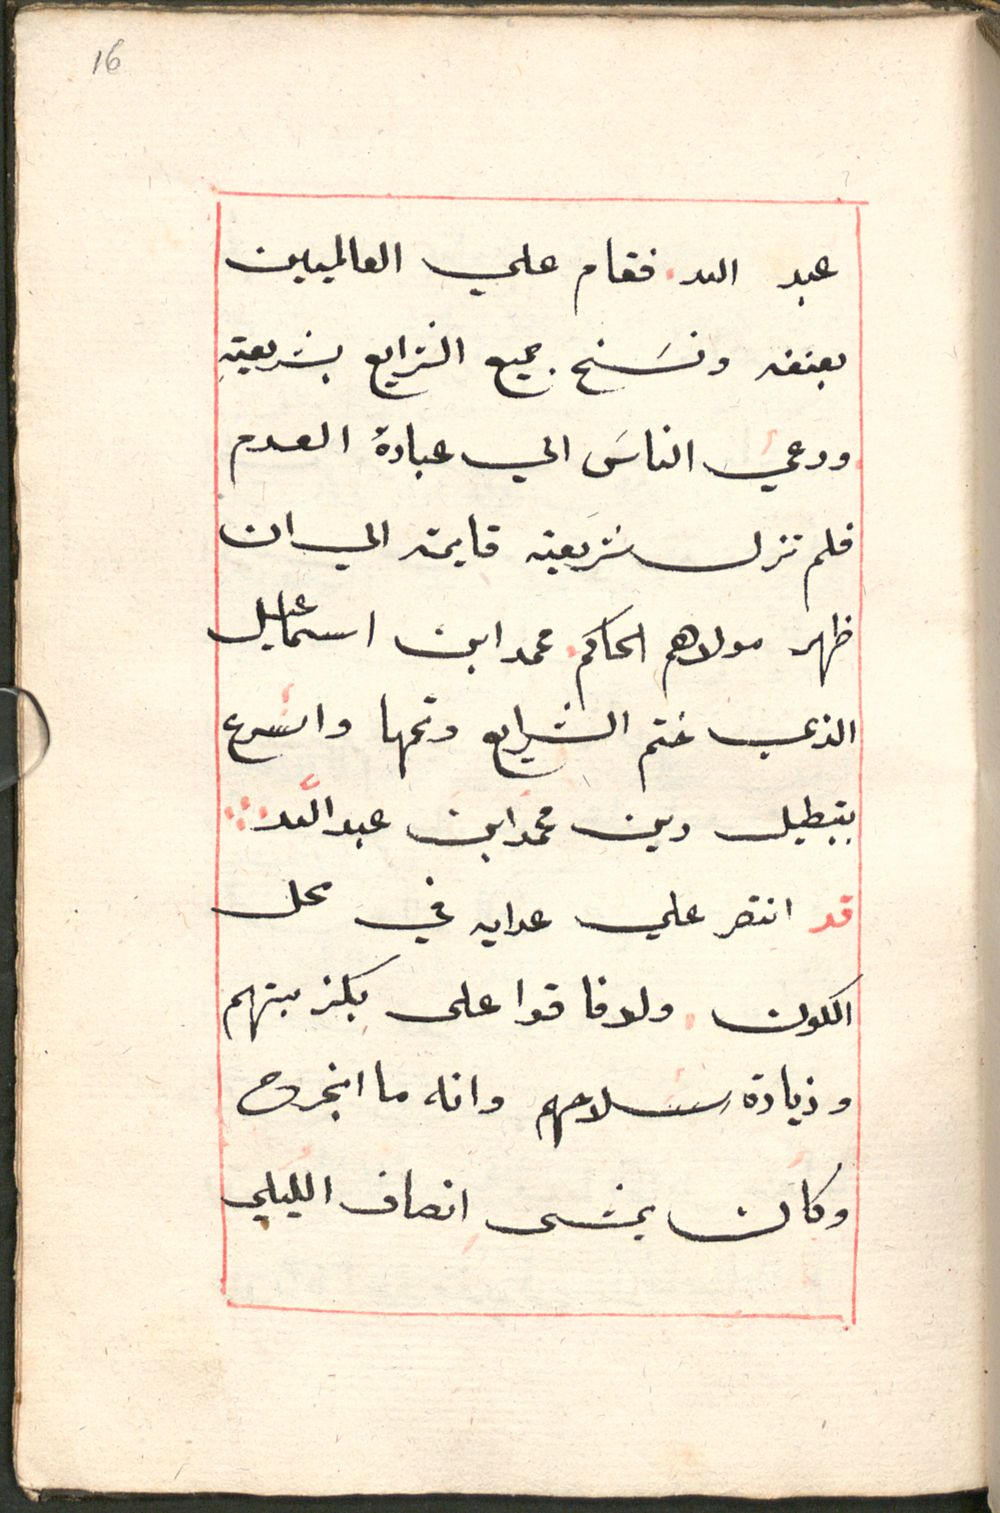 16
عبد الله فقام علي العالميين
بعنفه ونسَخ جميع الشرايع بشريعتهِ
ودعي الناسَ الي عبادة العدم
فلم تزل شريعته قايمة الي ان
ظهر مولاهم الحاكم محمد ابن اسماعيل
الذي ختم الشرايع وتمها واسرع
بتبطيل دين محمد ابن عبد الله
قد انتصر علي عدايه في محل
الكون ولو فاقوا على بكثر بينهم
وذيادة سلاحهم وانه ما انجرح
وكان يمشى انصاف الليلي